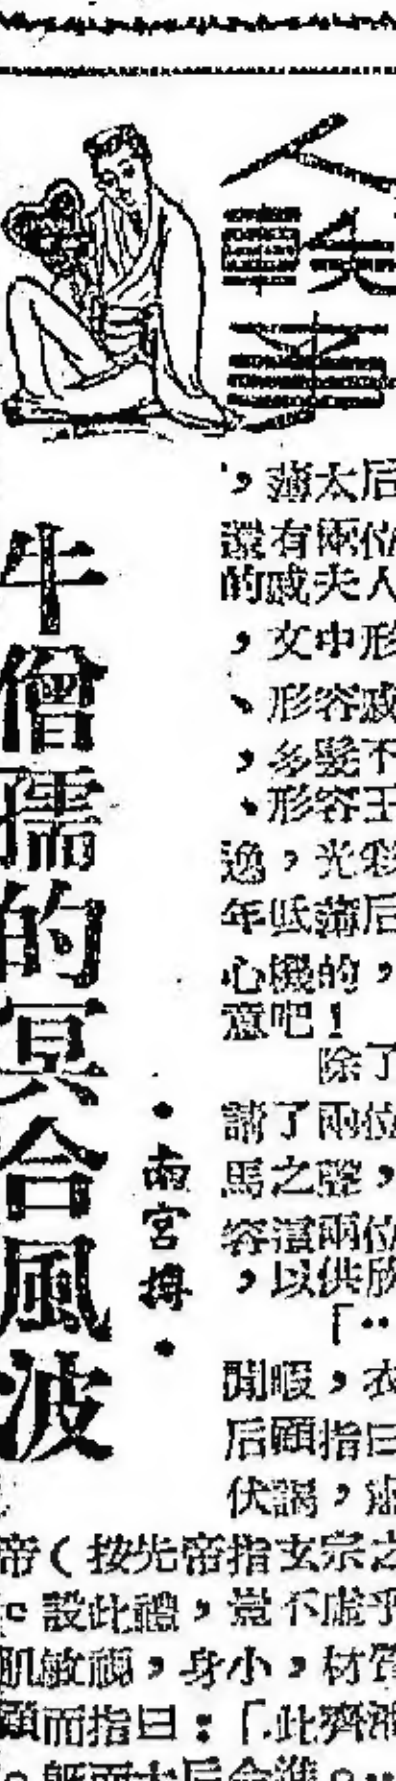 牛僧孺的冥合風波
·南宮搏·
,薄太后
還有兩位
的戚夫人
,文中形
、形容戚
,多髮不
、形容王
逸,光彩
年低薄后
心機的,
意吧!
除了
請了兩位
馬之聲,
容這兩位
,以供欣
「‥
閒暇,衣
后顧指曰
伏謁,
帝(按先帝指玄宗之
。設此禮,豈不虛乎
肌敏視,身小,材質
顧而指曰:「此齊潘